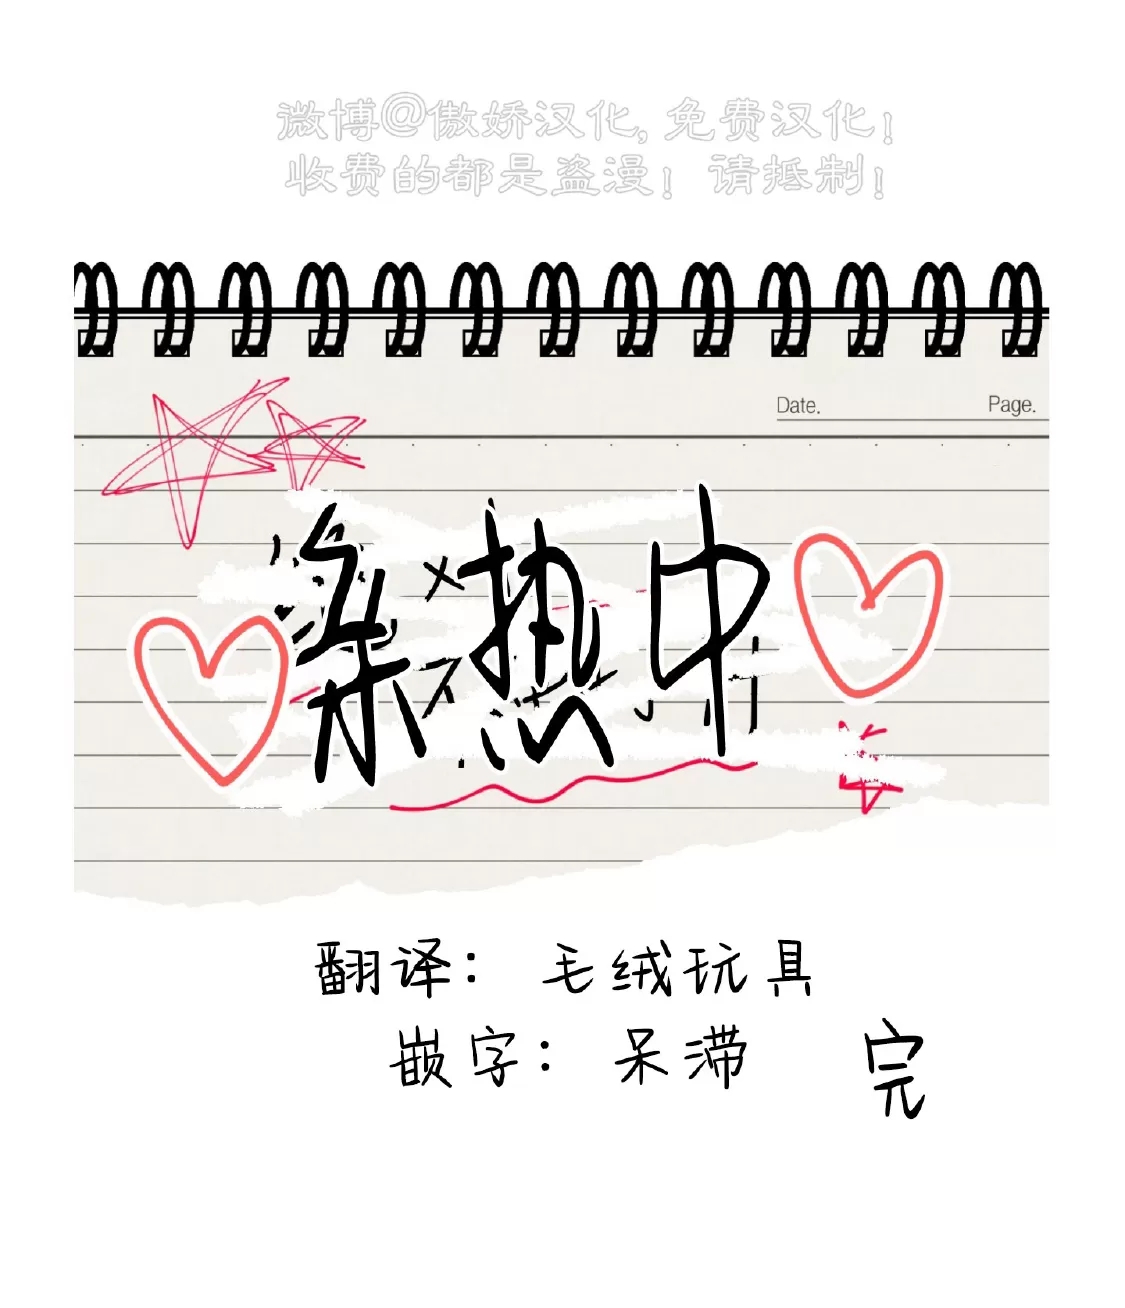 微博@傲娇汉化,免费汉化!
收费的都是盗漫!请抵制!
Date.
Page.
杂热中
翻译:毛绒玩具
嵌字:呆滞
完